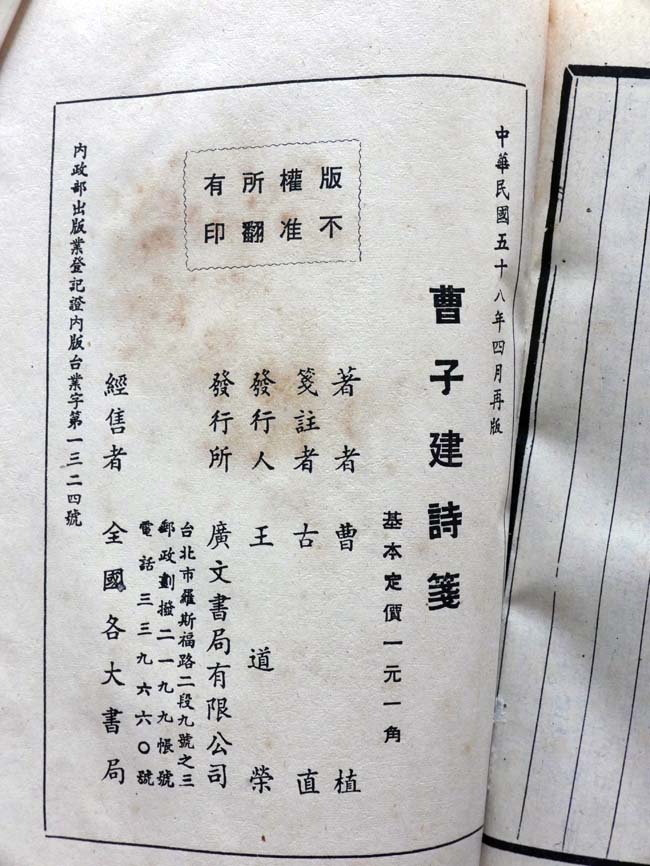 中華民國五十八年四月再版
曹子建詩箋
基本定價一元一角
著者 曹植
箋註者 古直
發行人 王道榮
發行所 廣文書局有限公司
台北市羅斯福路二段九號之三
郵政劃撥二一九九帳號
電話三三九六六〇號
經售者 全國各大書局
版權所有
不准翻印
內政部出版業登記證內版台業字第一三二四號